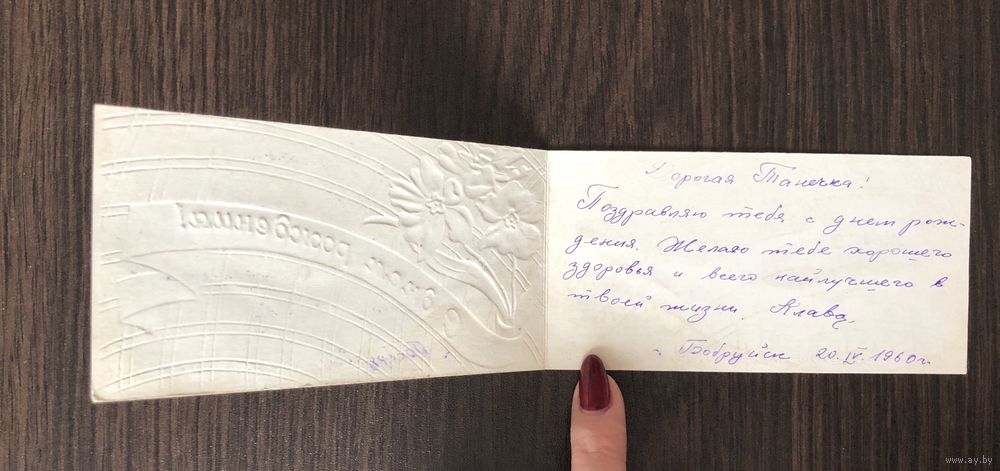 С днем рождения!
Дорогая Танечка!
Поздравляю тебя с днем рож-
дения. Желаю тебе хорошего
здоровья и всего наилучшего в
твоей жизни. Клава.
Бобруйск 20.IV.1960г.
www.ay.by